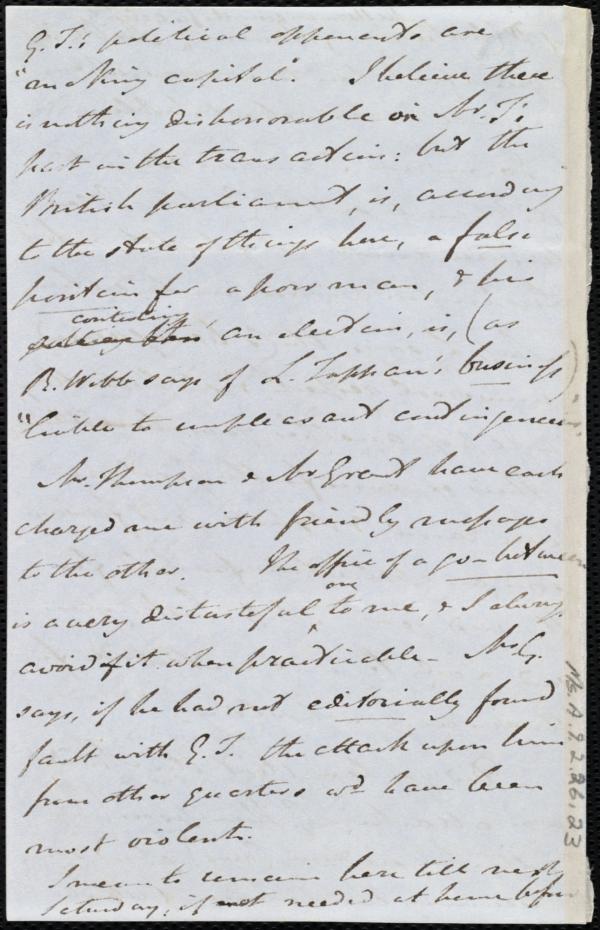 G. T.'s political opponents are
"making capital". I believe there
is nothing dishonorable in Mr. T's
part in the transaction: but the
British parliament, is, according
to the state of things here, a false
position for a poor man, & his
contesting
an election, is, (as
R. Webb says of L. Tappan's business)
"liable to unpleasant contingencies.
Mr. Thompson & Mr Grant have each
charged me with friendly messages
to the other. The office of a go-between
one
is a very distasteful to me, & I always
avoid it when practicable - Mr G.
says, if he had not editorially found
fault with G. T. the attack upon him
from other quarters wd have been
most violent.
I mean to remain here till next
Saturday, if not needed at home before
Ms.A.9.2.26.23